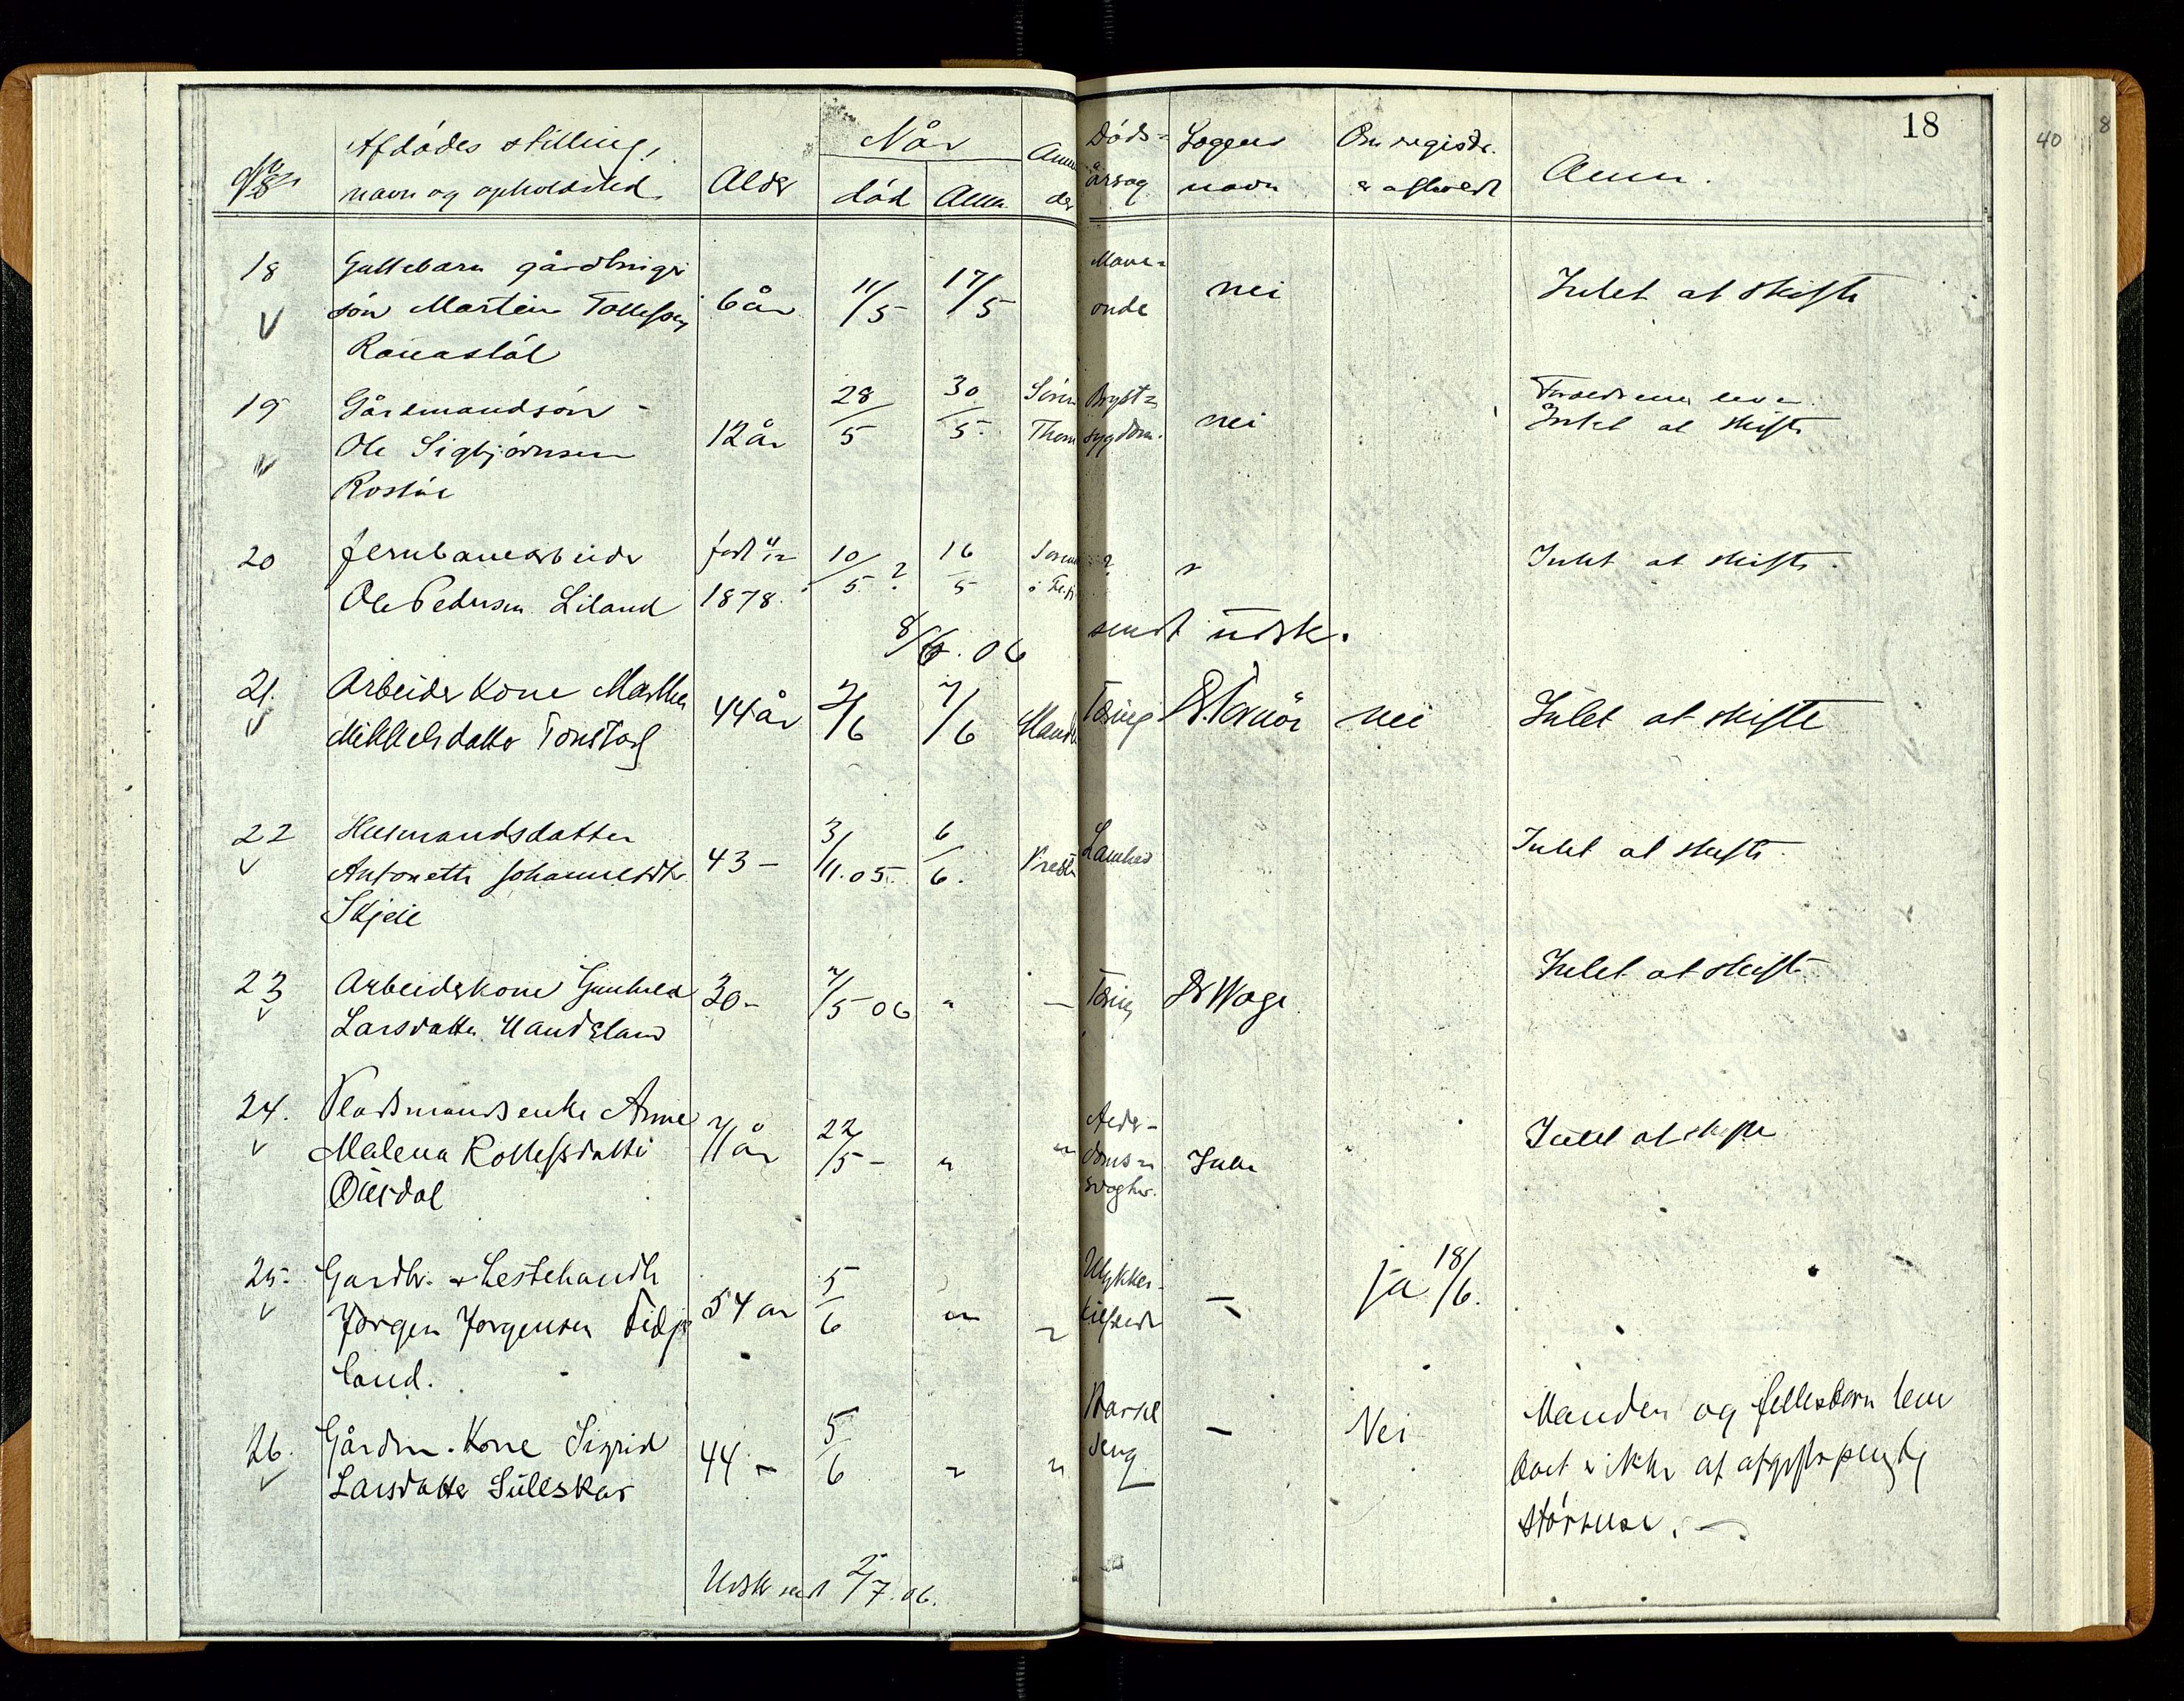 18
40
8
No. Afdødes stilling, navn og opholdssted Alder Når død Anm. Dødsårsag Lægens navn Om registr. er afholdt Anm.
18 Guttebarn gårdbrugersøn Martin Tollefsen 6 år 11/5 17/5 Mave-onde nei Intet at skifte
19 Gårdmandsøn Ole Sigbjørnsen 12 år 28/5 30/5 Bryst-sygdom. nei Forældrene lever. Intet at skifte
20 Jernbanearbeider Ole Pedersen Liland født 1878. 10/5 ? 16/5 ? Intet at skifte.
8/6.06 sendt udsk.
21. Arbeider Kone Martha Mikkelsdatter Tonstad 44 år 2/6 7/6 Tæring nei Intet at skifte
22 Husmandsdatter Antonette Johannesdtr Skjeie 43 - 3/11.05. 6/6. Lamhed Intet at skifte.
23 Arbeiderkone Gunhild Larsdatter Haudeland 30 - 7/5 06 " — Tæring Dr Wage Intet at skifte
24. Pladsmandsenke Anne Malena Rollefsdatter Øusdal 71 år 22/5 - " " Alderdoms-svaghed. Intet at skifte
25. Gårdbr. & Hestehandler Jørgen Jørgensen Fidjeland. 54 år 5/6 " " Ulykkestilfælde — ja 18/6.
26. Gårdm. Kone Sigrid Larsdatter Suleskar 44 - 5/6 " " Barselseng — Nei Manden og fellesbarn lever
boet er ikke af afgiftspligtig
størrelse. —
Udskr sendt 2/7.06.